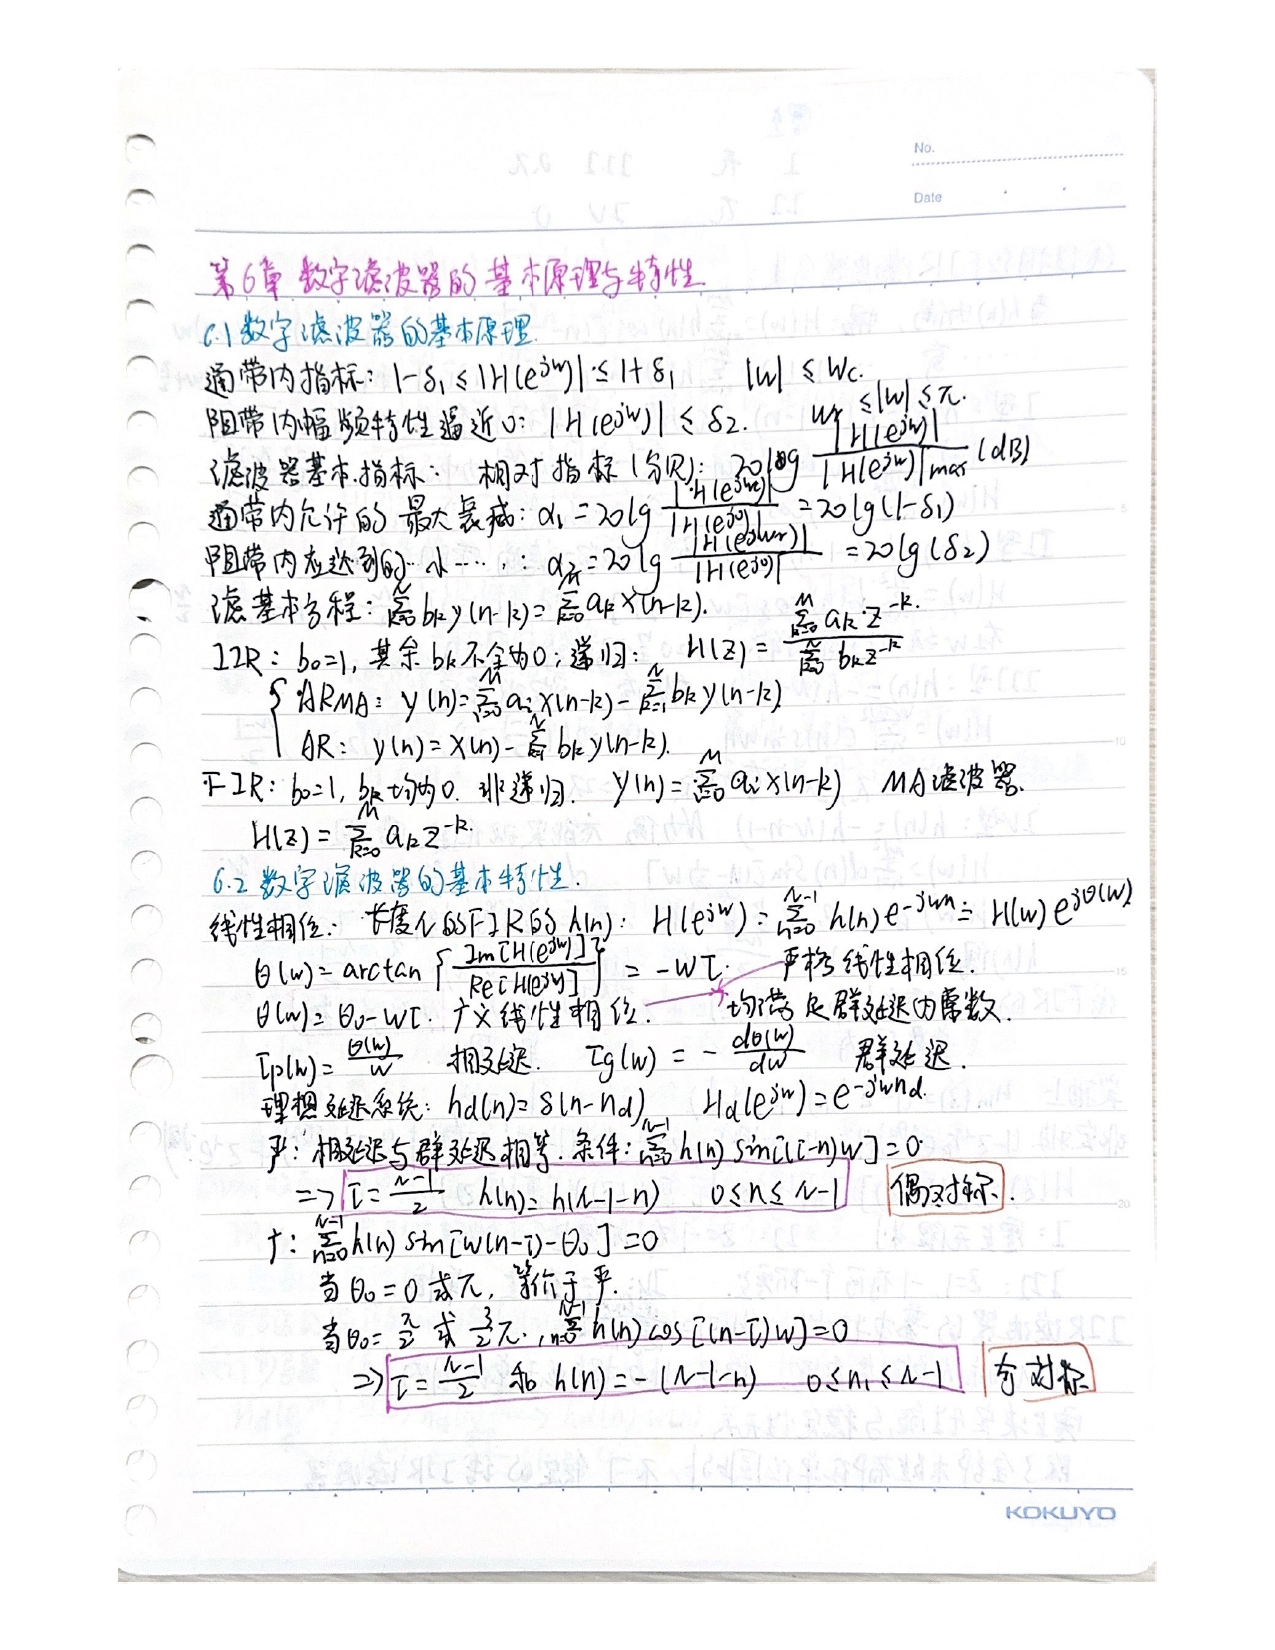 No.
Date
第6章 数字滤波器的基本原理与特性
6.1 数字滤波器的基本原理.
通带内指标: 1-δ₁ ≤ |H(e^{jw})| ≤ 1+δ₁ |w| ≤ Wc.
阻带内幅频特性逼近0: |H(e^{jw})| ≤ δ2. Wr ≤|w| ≤ π.
滤波器基本指标: 相对指标(分贝): 20log |H(e^{jw})| / |H(e^{jw})|max (dB)
通带内允许的最大衰减: α₁ = 20lg |H(e^{jwc})| / |H(e^{j0})| = 20lg(1-δ₁)
阻带内应达到的…小……: α₂ = 20lg |H(e^{jwr})| / |H(e^{j0})| = 20lg(δ2)
滤基本方程: Σ_{k=0}^{N} b_k y(n-k) = Σ_{k=0}^{M} a_k x(n-k).
IIR: b₀=1, 其余b_k不全为0; 递归: H(z) = Σ_{k=0}^{M} a_k z^{-k} / Σ_{k=0}^{N} b_k z^{-k}
ARMA: y(n)=Σ_{i=0}^{M} a_i x(n-k) - Σ_{k=1}^{N} b_k y(n-k)
AR: y(n) = x(n) - Σ_{k=1}^{N} b_k y(n-k).
FIR: b₀=1, b_k均为0. 非递归. y(n) = Σ_{i=0}^{M} a_i x(n-k) MA滤波器.
H(z) = Σ_{k=0}^{M} a_k z^{-k}.
6.2 数字滤波器的基本特性.
线性相位: 长度N的FIR的h(n): H(e^{jw}) = Σ_{n=0}^{N-1} h(n) e^{-jwn} = H(w) e^{jθ(w)}
θ(w) = arctan { Im[H(e^{jw})] / Re[H(e^{jw})] } = -wτ. 严格线性相位.
θ(w) = θ₀-wτ. 广义线性相位. 均满足群延迟为常数.
τp(w) = θ(w)/w 相延迟. τg(w) = - dθ(w)/dw 群延迟.
理想延迟系统: hd(n) = δ(n-nd) Hd(e^{jw}) = e^{-jwnd}.
严: 相延迟与群延迟相等. 条件: Σ_{n=0}^{N-1} h(n) sin[(τ-n)w] = 0
=> τ = N-1/2 h(n) = h(N-1-n) 0≤n≤N-1 偶对称.
广: Σ_{n=0}^{N-1} h(n) sin[w(n-τ)-θ₀] = 0
当θ₀ = 0 或π, 等价于严.
当θ₀ = π/2 或 3/2π. Σ_{n=0}^{N-1} h(n) cos[(n-τ)w] = 0
=> τ = N-1/2 和 h(n) = -(N-1-n) 0≤n≤N-1 奇对称
KOKUYO